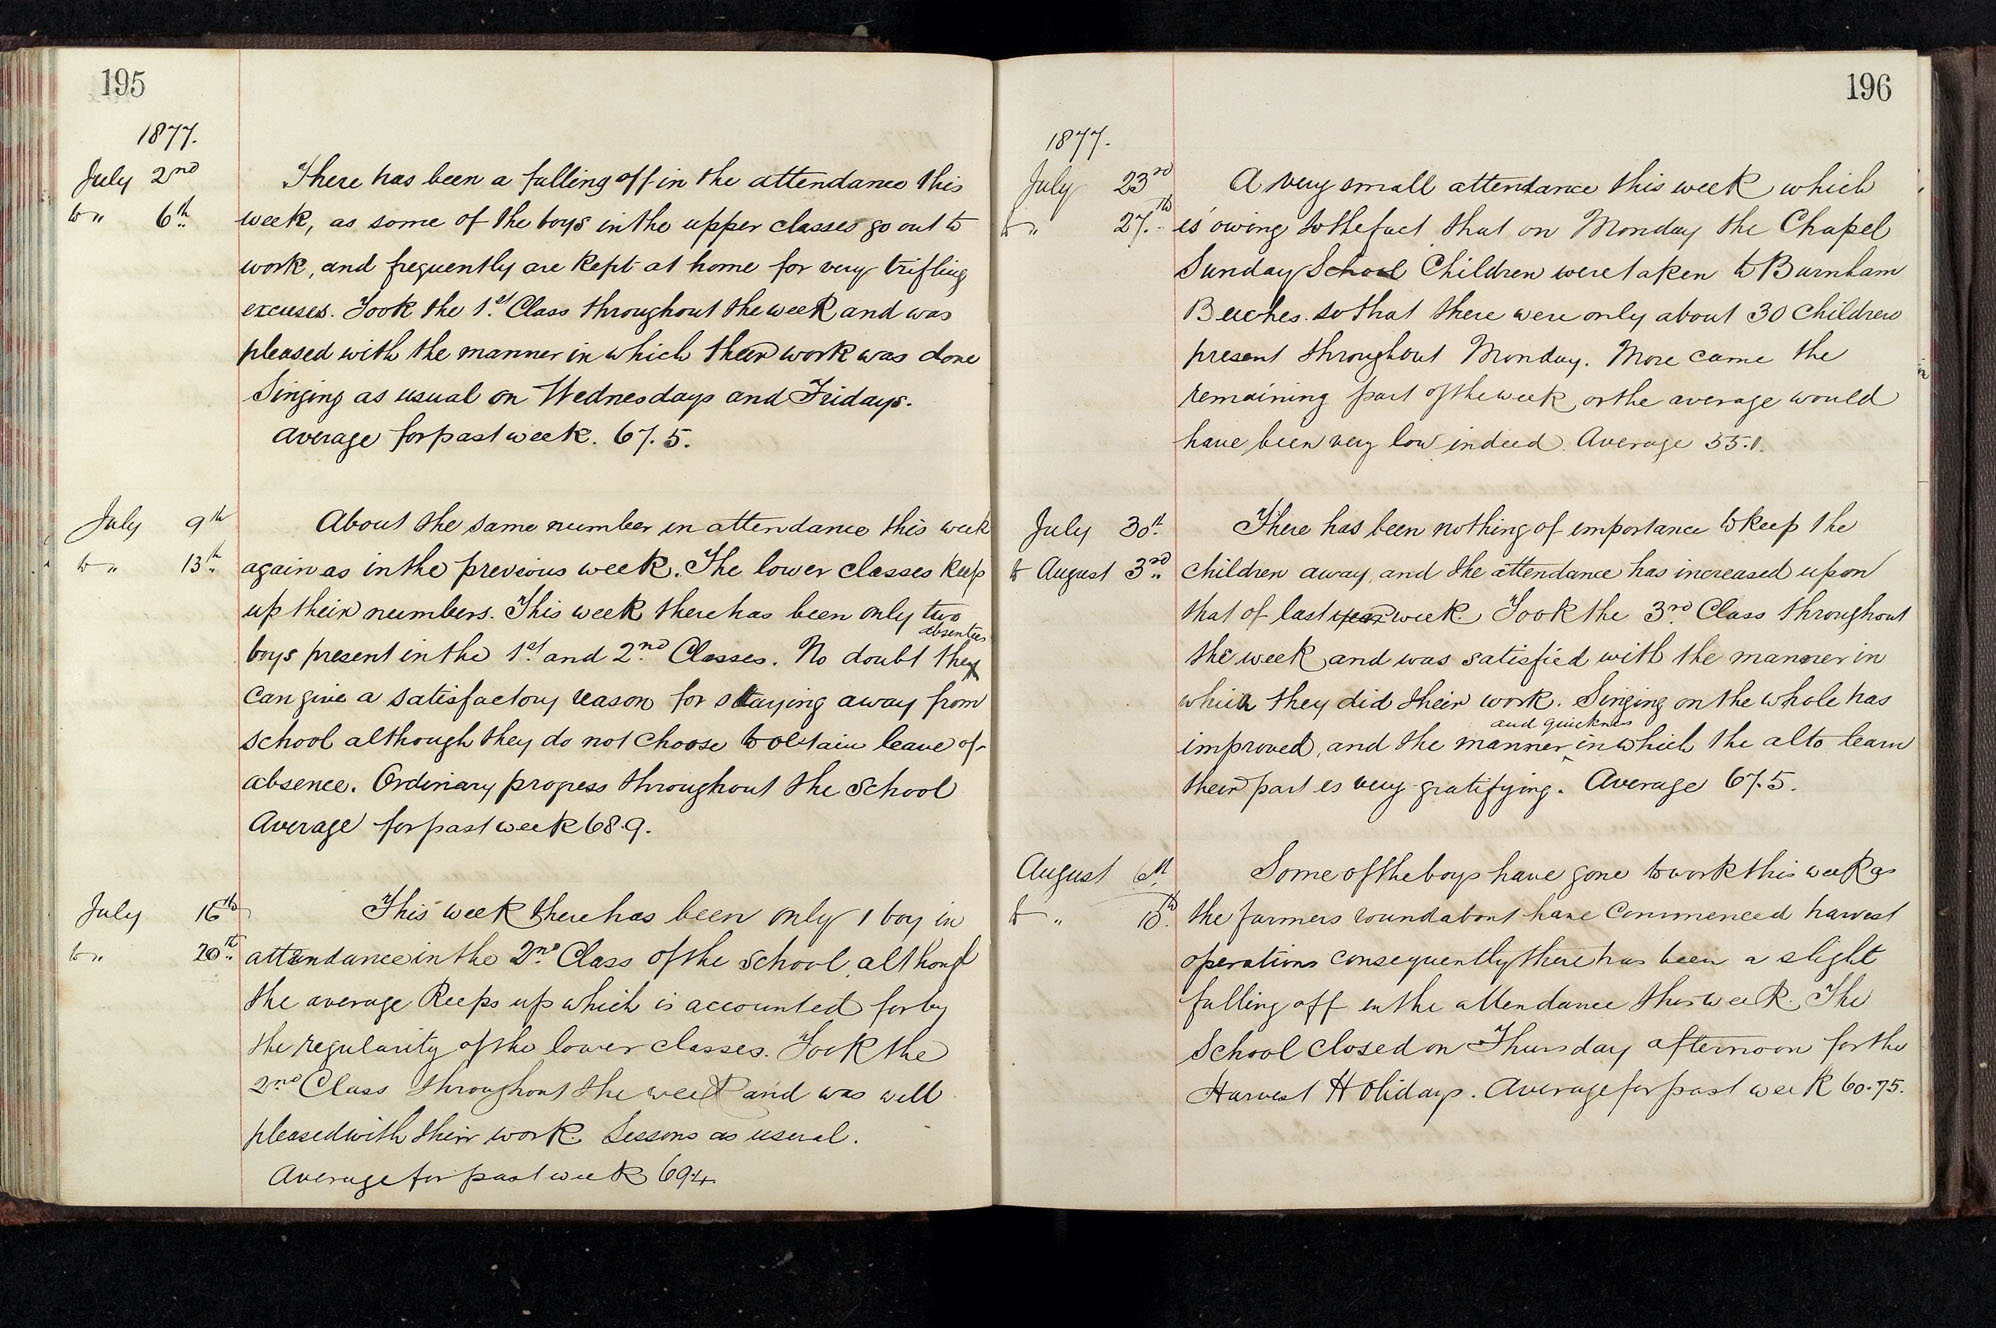 195
1877.
July 2nd There has been a falling off in the attendance this
to " 6th week, as some of the boys in the upper classes go out to
work, and frequently are kept at home for very trifling
excuses. Took the 1st Class throughout the week and was
pleased with the manner in which their work was done
Singing as usual on Wednesdays and Fridays.
Average for past week. 67.5.
July 9th About the same number in attendance this week
to " 13th again as in the previous week. The lower classes keep
up their numbers. This week there has been only two
absentees
boys present in the 1st and 2nd Classes. No doubt they
can give a satisfactory reason for staying away from
school although they do not choose to obtain leave of
absence. Ordinary progress throughout the School
Average for past week 68.9.
July 16th This week there has been only 1 boy in
to " 20th attendance in the 2nd Class of the School, although
the average keeps up which is accounted for by
the regularity of the lower classes. Took the
2nd Class throughout the week and was well
pleased with their work. Lessons as usual.
Average for past week 69.4
196
1877.
July 23rd A very small attendance this week which
to " 27th is owing to the fact that on Monday the Chapel
Sunday School Children were taken to Burnham
Beeches so that there were only about 30 children
present throughout Monday. More came the
remaining part of the week or the average would
have been very low indeed. Average 55.1.
July 30th There has been nothing of importance to keep the
to August 3rd children away, and the attendance has increased upon
that of last year week. Took the 3rd Class throughout
the week and was satisfied with the manner in
which they did their work. Singing on the whole has
and quickness
improved, and the manner in which the alto learn
their part is very gratifying. Average 67.5.
August 6th Some of the boys have gone to work this week as
to " 10th the farmers roundabout have commenced harvest
operations consequently there has been a slight
falling off in the attendance this week. The
School closed on Thursday afternoon for the
Harvest Holidays. Average for past week 60.75.